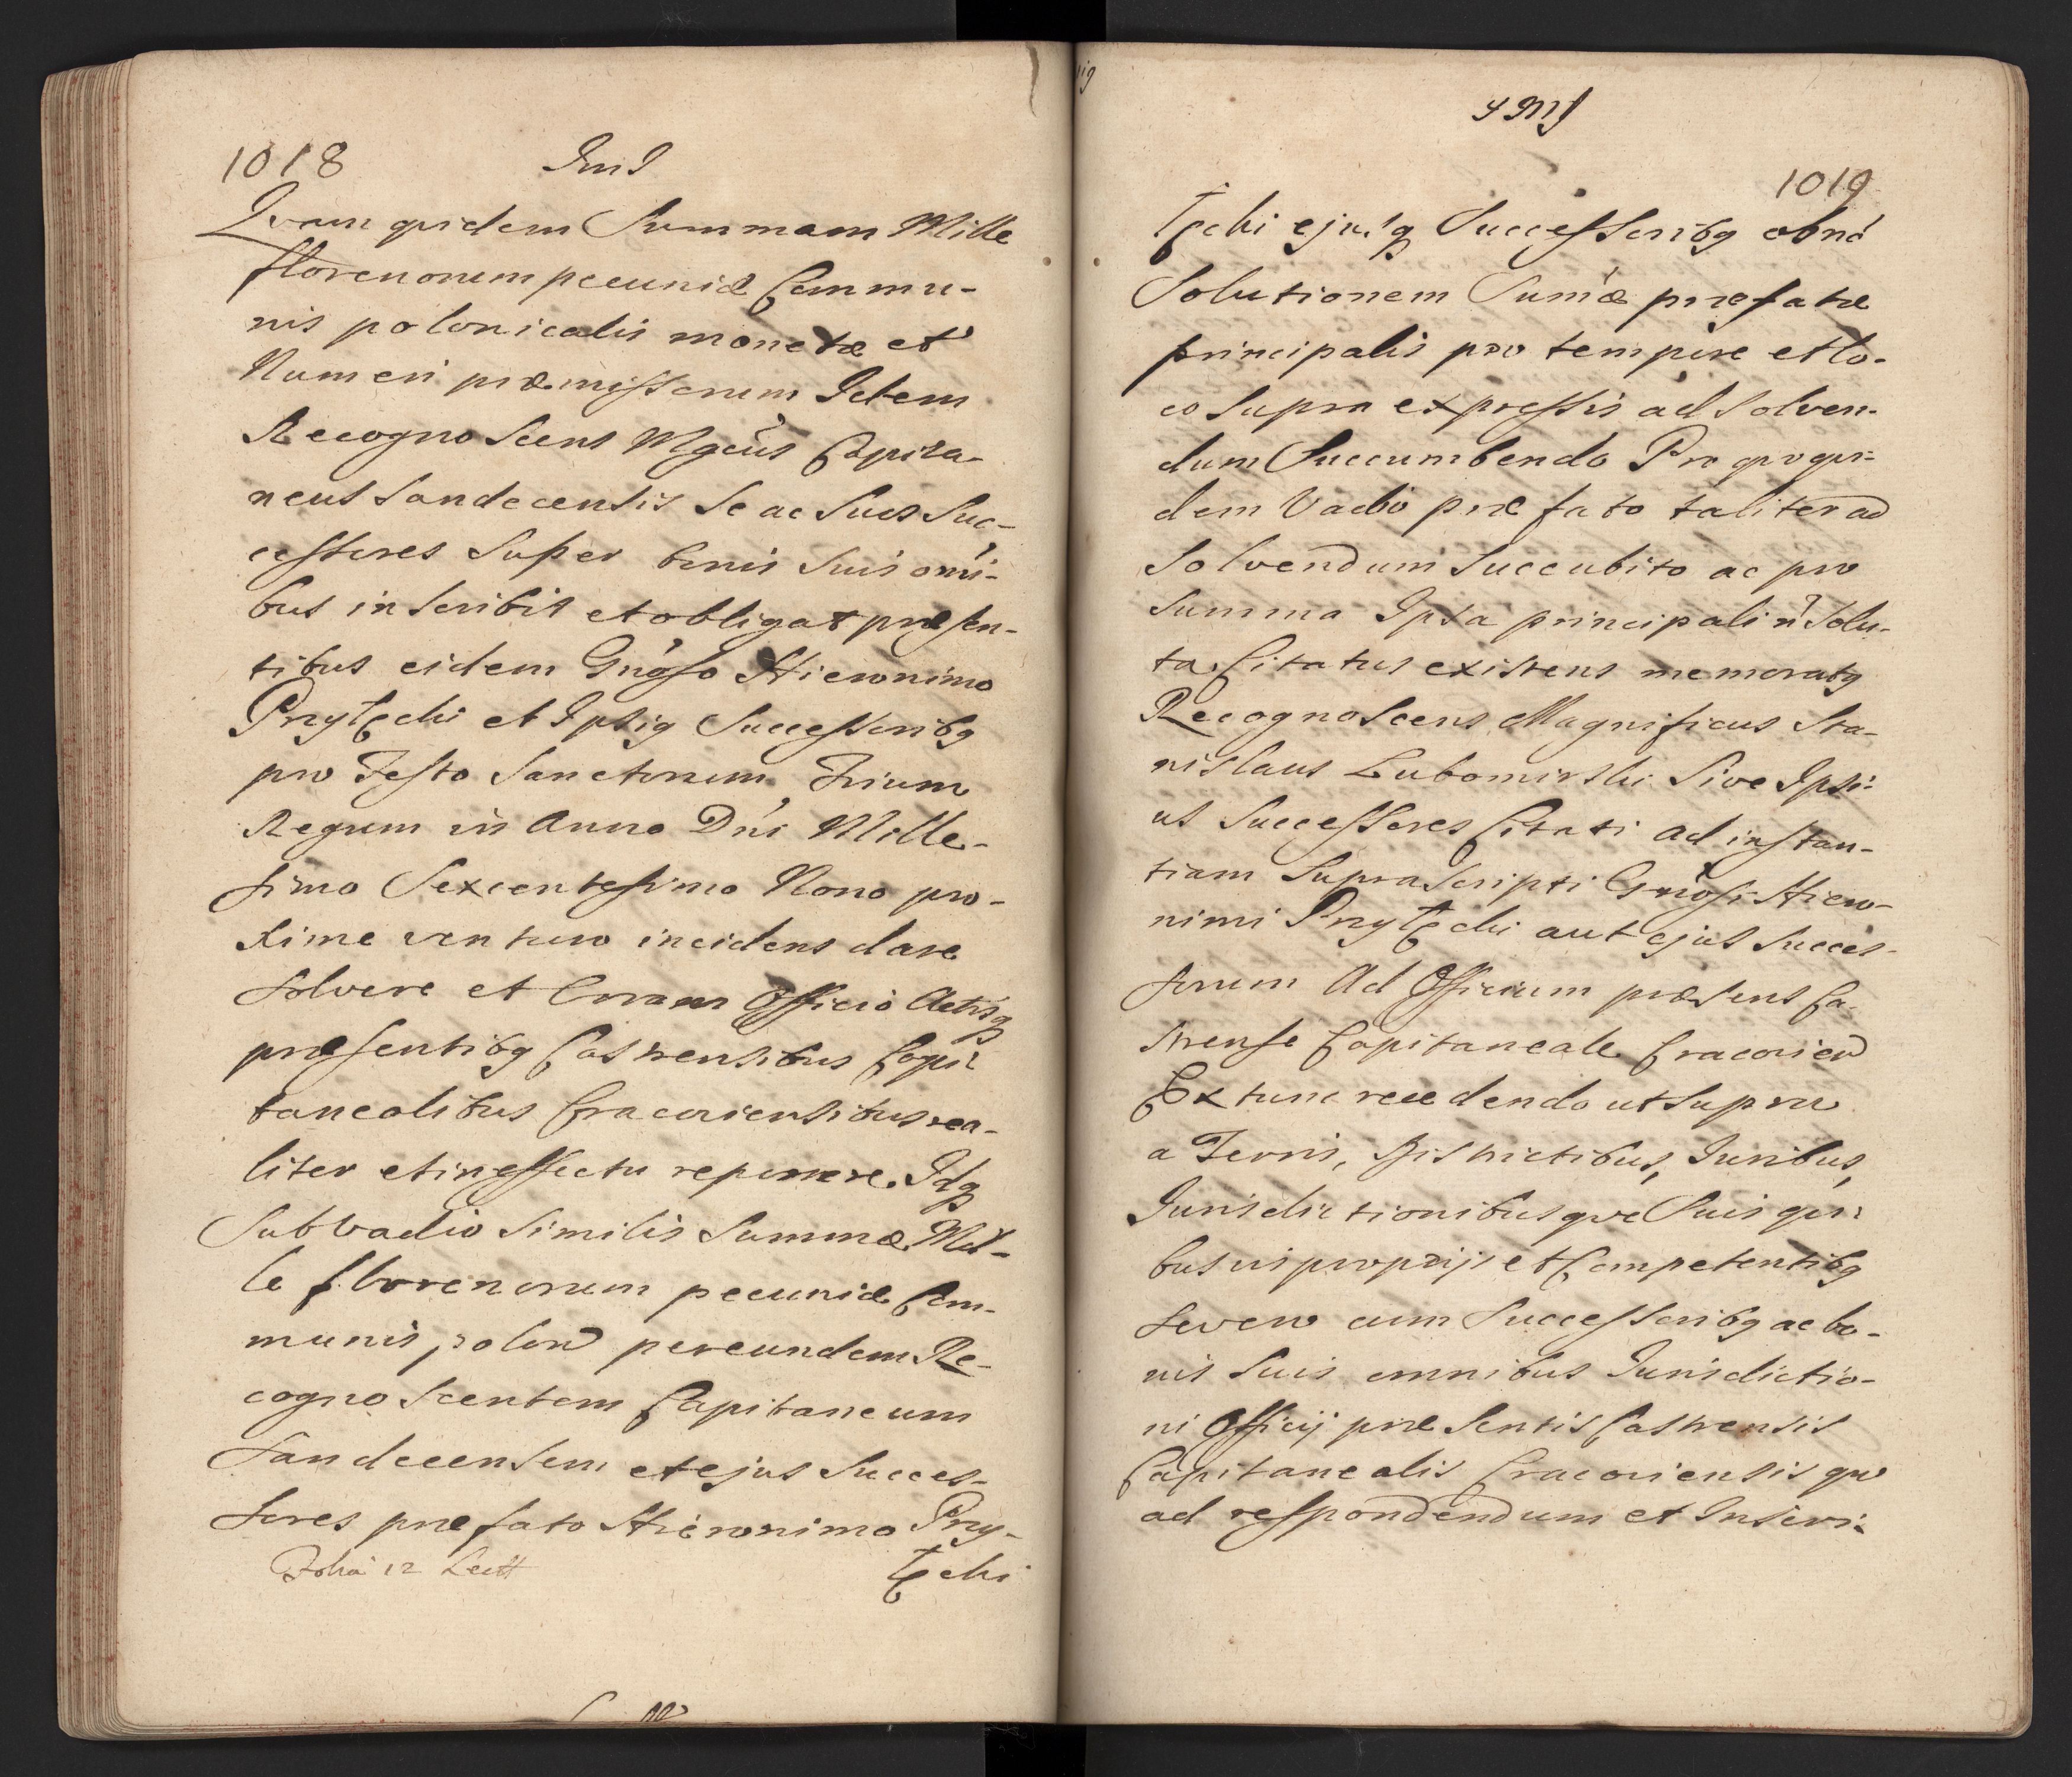 1018
Quam quidem Summam Mille
florenorum pecuniæ Commu-
nis polonicalis monetæ et
Numeri præmissorum Idem
Recognoscens Mgcus Capita-
neus Sandecensis Se ac Suos Suc-
cessores Super bonis Suis omi-
bus inscribit et obligat præsen-
tibus eidem Gnoso Hieronimo
Przyłęcki et Ipsiq Successoribq
pro Festo Sanctorum Trium
Regum in Anno Dni Mille-
simo Sexcentesimo Nono pro-
xime venturo incidens dare
Solvere et Coram Officio Actisq
præsentibq Castrensibus Capi-
tanealibus Cracoviensibus rea-
liter et in effectu reponere. Idq
Sub vadio Similis Summæ Mil-
le florenorum pecuniæ Com-
munis polon per eundem Re-
cognoscentem Capitaneum
Sandecensem et ejus Succes-
sores præfato Hieronimo Przy-
łęcki
1019
łęcki ejusq Successoribq ob no
Solutionem Sumæ præfatæ
principalis pro tempore et lo-
co Supra expressis ad Solven-
dum Succumbendo Pro quo qui-
dem Vadio præfato taliter ad
Solvendum Succubito ac pro
Summa Ipsa principali n Solu-
ta Citatus existens memoratq
Recognoscens Magnificus Sta-
nislaus Lubomirski Sive Ipsi-
us Successores Citati ad instan-
tiam Suprascripti Gnosi Hiero-
nimi Przyłęcki aut ejus Succes-
sorum Ad Officium præsens Ca-
strense Capitaneale Cracovien
Ex tunc recedendo ut Supra
a Terris, Districtibus, Juribus,
Jurisdictionibusque Suis qui-
busvis proprijs et Competentibq
Severo cum Successoribq ac bo-
nis Suis omnibus Jurisdictio-
ni Officij præsentis Castrensis
Capitanealis Cracoviensis quo
ad respondendum et Inscri-